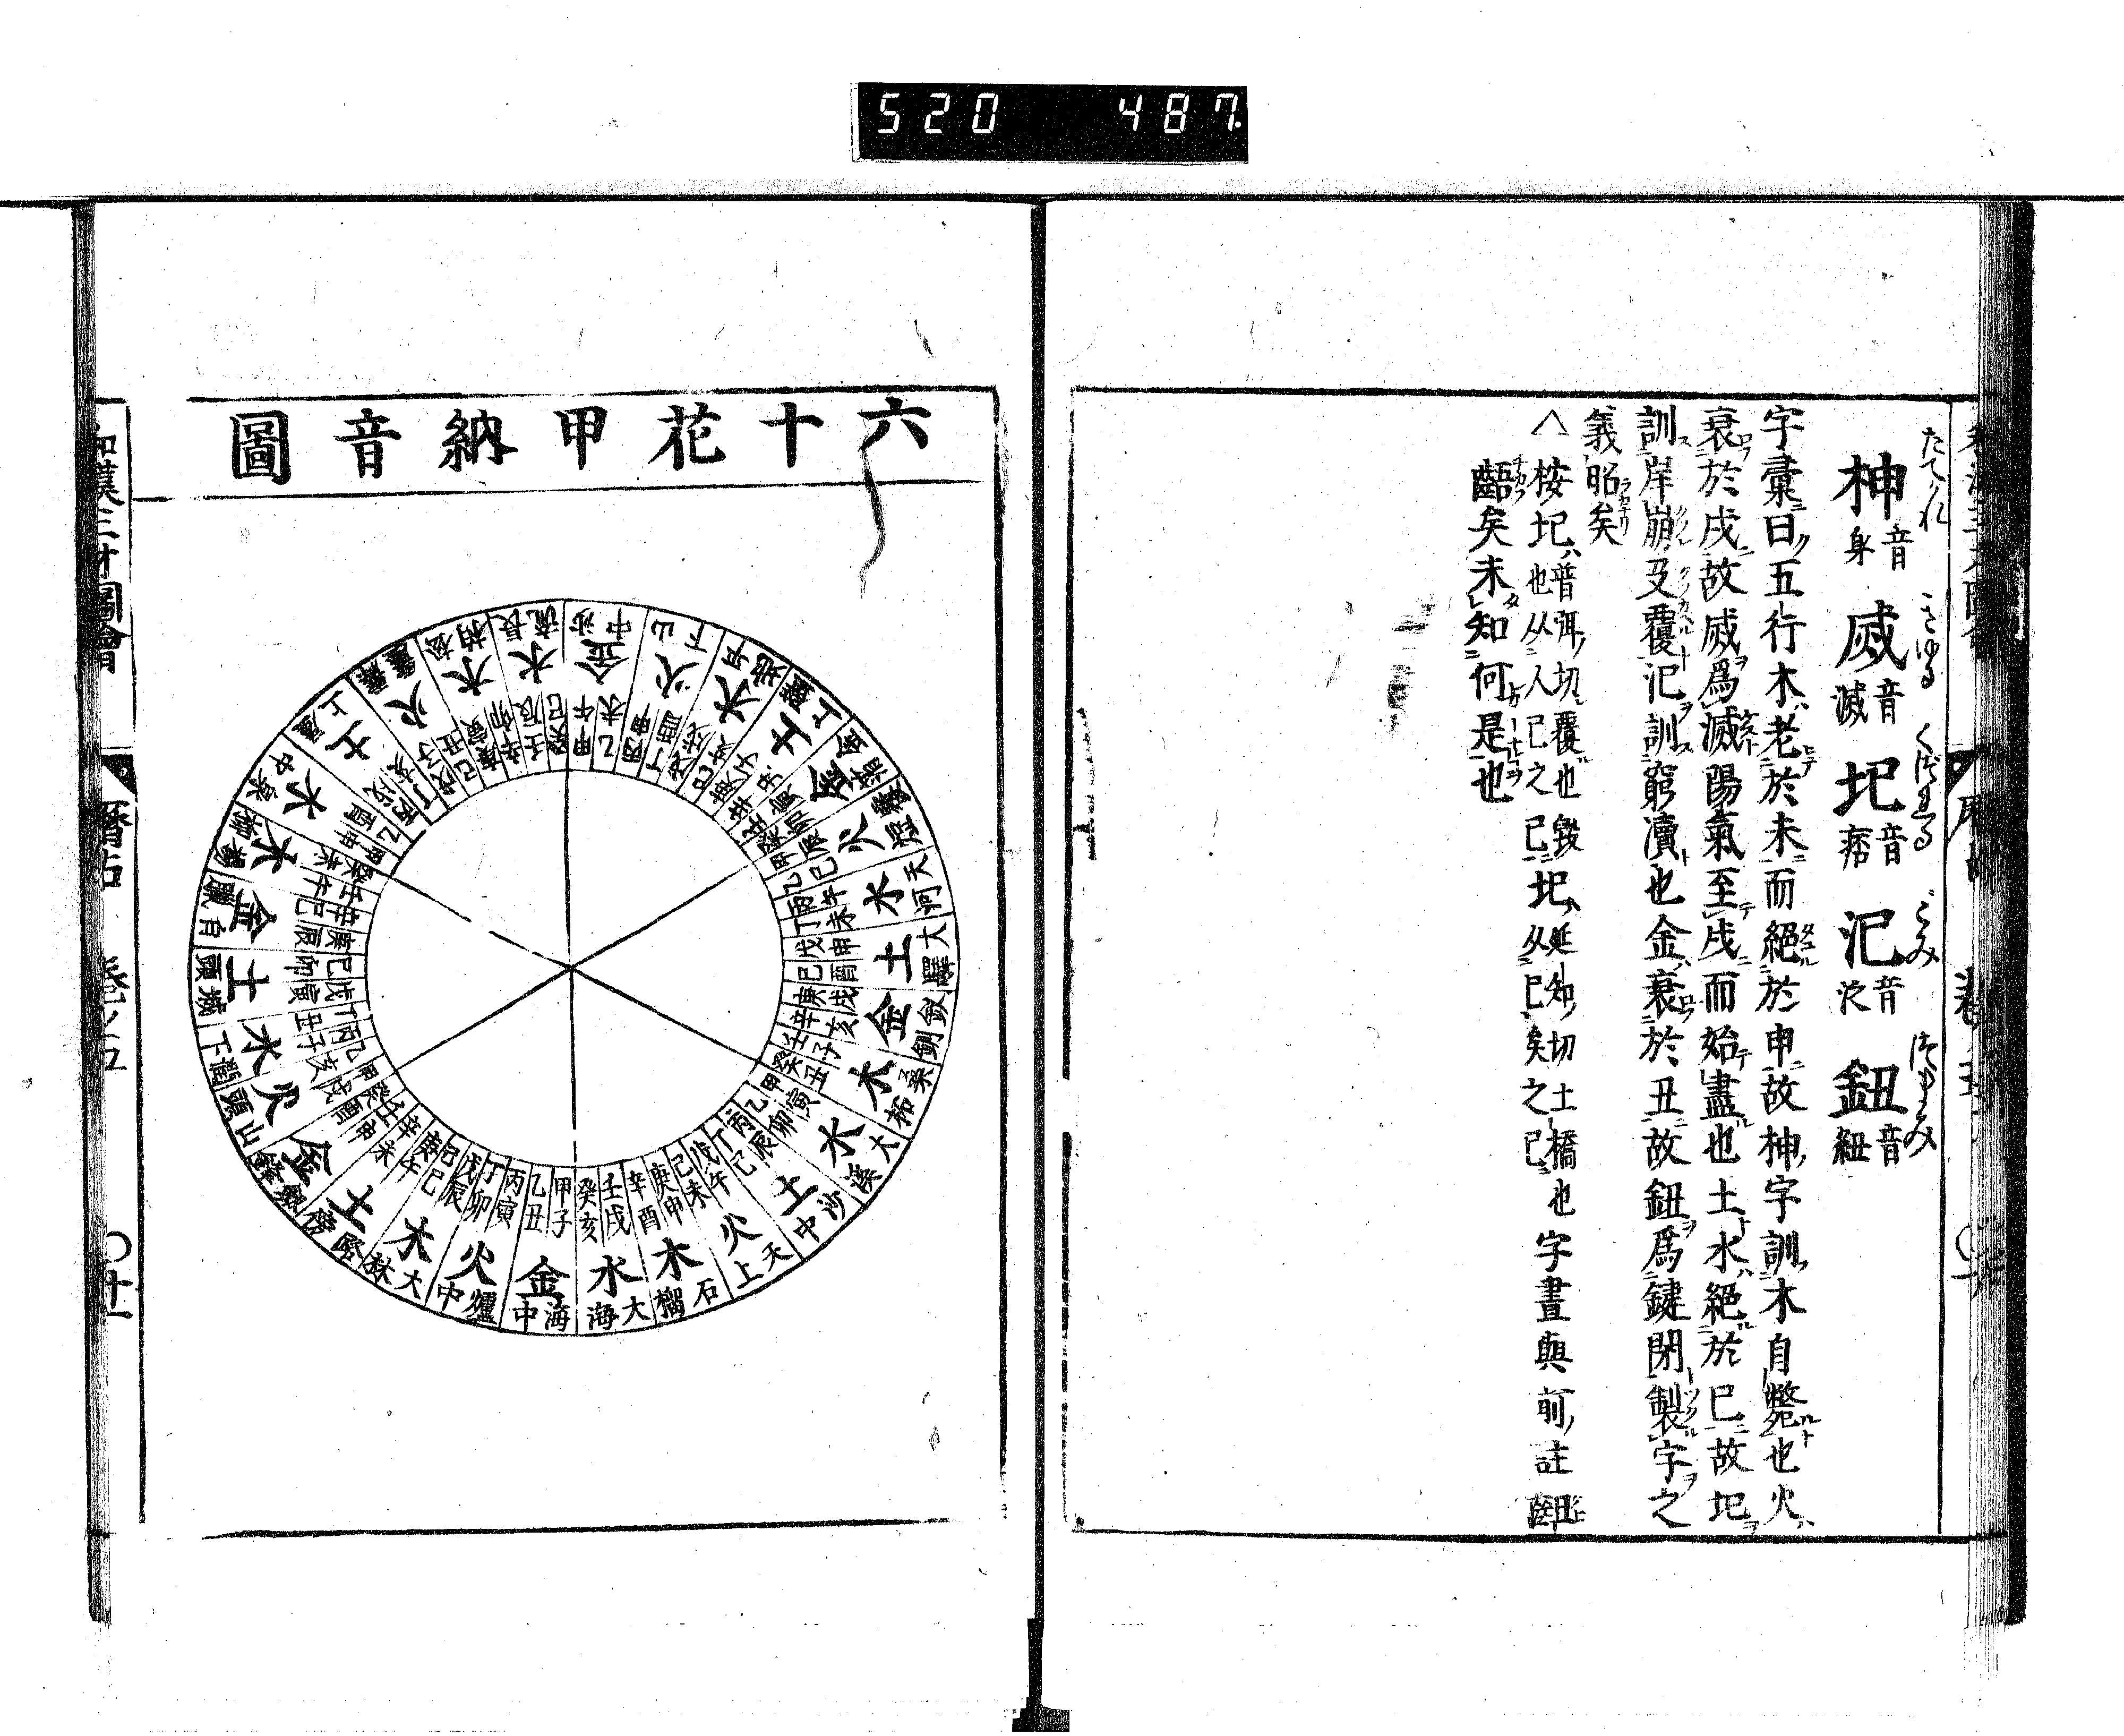 520 487.
たてがれ きゆる くづるる ごみ つまみ
柛 音身 烕 音滅 圮 音痞 汜 音 鈕 音紐
字彙曰五行木老於未而絕於申故柛字訓木自斃也火
衰於戌故烕爲滅陽氣至戌而始盡也土水絕於巳故圮
訓岸崩及覆汜訓窮瀆也金衰於丑故鈕爲鍵閉製字之
義昭矣
△按圮普洱切覆也毀也从人己之己圯延知切土橋也从巳矣之巳字畫與前註齟
齬矣未知何是也
六十花甲納音圖
甲子乙丑金海中
丙寅丁卯火爐中
戊辰己巳木大林
庚午辛未土路傍
壬申癸酉金劒鋒
甲戌乙亥火山頭
丙子丁丑水澗下
戊寅己卯土城頭
庚辰辛巳金白臘
壬午癸未木楊柳
甲申乙酉水泉中
丙戌丁亥土屋上
戊子己丑火霹靂
庚寅辛卯木松柏
壬辰癸巳水長流
甲午乙未金沙中
丙申丁酉火山下
戊戌己亥木平地
庚子辛丑土壁上
壬寅癸卯金箔金
甲辰乙巳火覆燈
丙午丁未水天河
戊申己酉土大驛
庚戌辛亥金釵釧
壬子癸丑木桑柘
甲寅乙卯水大溪
丙辰丁巳土沙中
戊午己未火天上
庚申辛酉木石榴
壬戌癸亥水大海
和漢三才圖會 曆占 卷之五 〇廿一